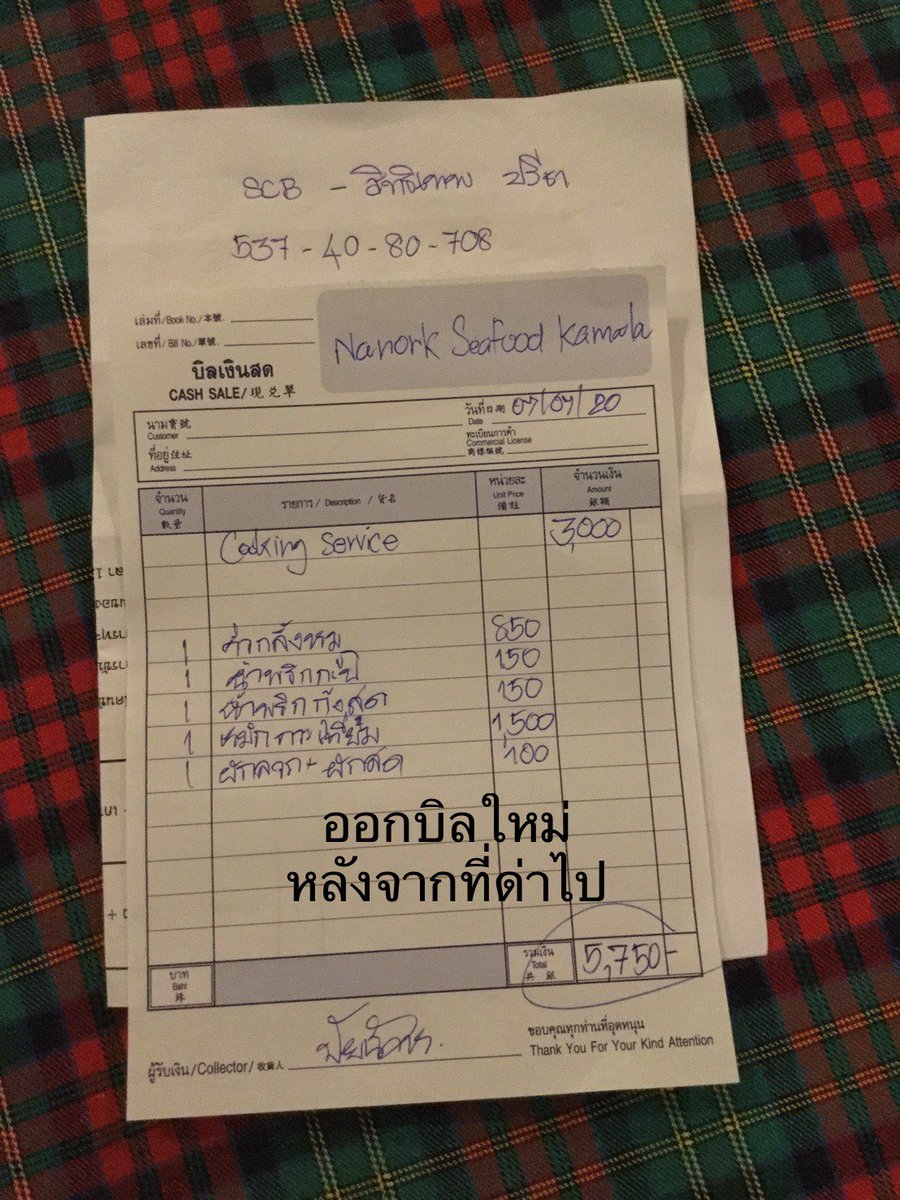 SCB -
537-40-80-708
เล่มที่/Book No./本號.
เลขที่/Bill No./單號.
Nanork Seafood Kamala
บิลเงินสด
CASH SALE/現兌單
วันที่日期 07/07/20
Date
นาม寶號
Customer
ทะเบียนการค้า
Commercial License
商標編號
ที่อยู่住址
Address
จำนวน รายการ / Description / 貨名 หน่วยละ จำนวนเงิน
Quantity Unit Price Amount
數量 備註 銀額
Cooking Service 3,000
1 คั่วกลิ้งหมู 850
1 น้ำพริกกะปิ 150
1 น้ำพริกกุ้งสด 150
1 หมึกกระเทียม 1,500
1 ผักลวก + ผักสด 100
ออกบิลใหม่
หลังจากที่ด่าไป
บาท รวมเงิน 5,750-
Baht Total
銖 共銀
ขอบคุณทุกท่านที่อุดหนุน
ผู้รับเงิน/Collector/收貨人 Thank You For Your Kind Attention